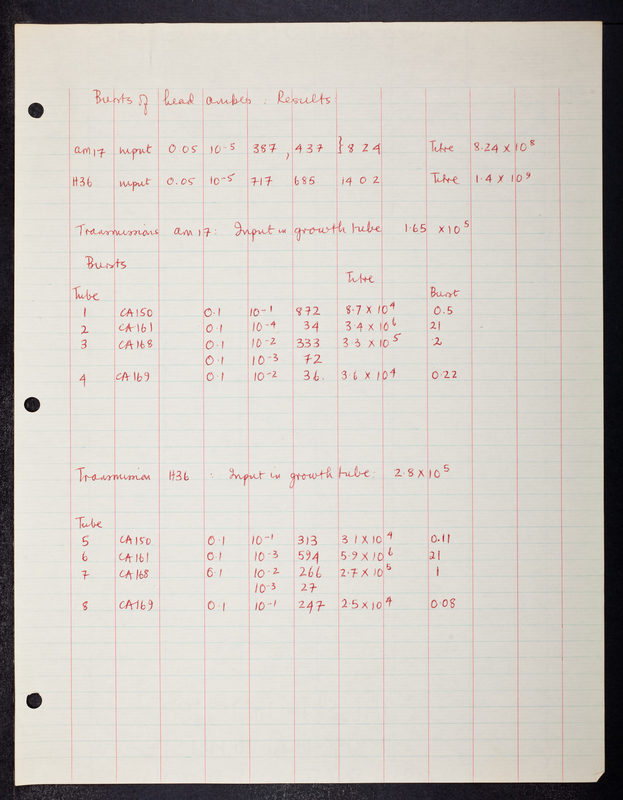 Bursts of head ambers : Results
am17 input 0.05 10-5 387, 437 } 824 Titre 8.24 x 10^8
H36 input 0.05 10-5 717 685 1402 Titre 1.4 x 10^9
Transmissions am 17: Input in growth tube 1.65 x 10^5
Bursts
Titre
Tube Burst
1 CA150 0.1 10-1 872 8.7 x 10^4 0.5
2 CA161 0.1 10-4 34 3.4 x 10^6 21
3 CA168 0.1 10-2 333 3.3 x 10^5 2
0.1 10-3 72
4 CA169 0.1 10-2 36. 3.6 x 10^4 0.22
Transmission H36 : Input in growth tube: 2.8 x 10^5
Tube
5 CA150 0.1 10-1 313 3.1 x 10^4 0.11
6 CA161 0.1 10-3 594 5.9 x 10^6 21
7 CA168 0.1 10-2 266 2.7 x 10^5 1
10-3 27
8 CA169 0.1 10-1 247 2.5 x 10^4 0.08